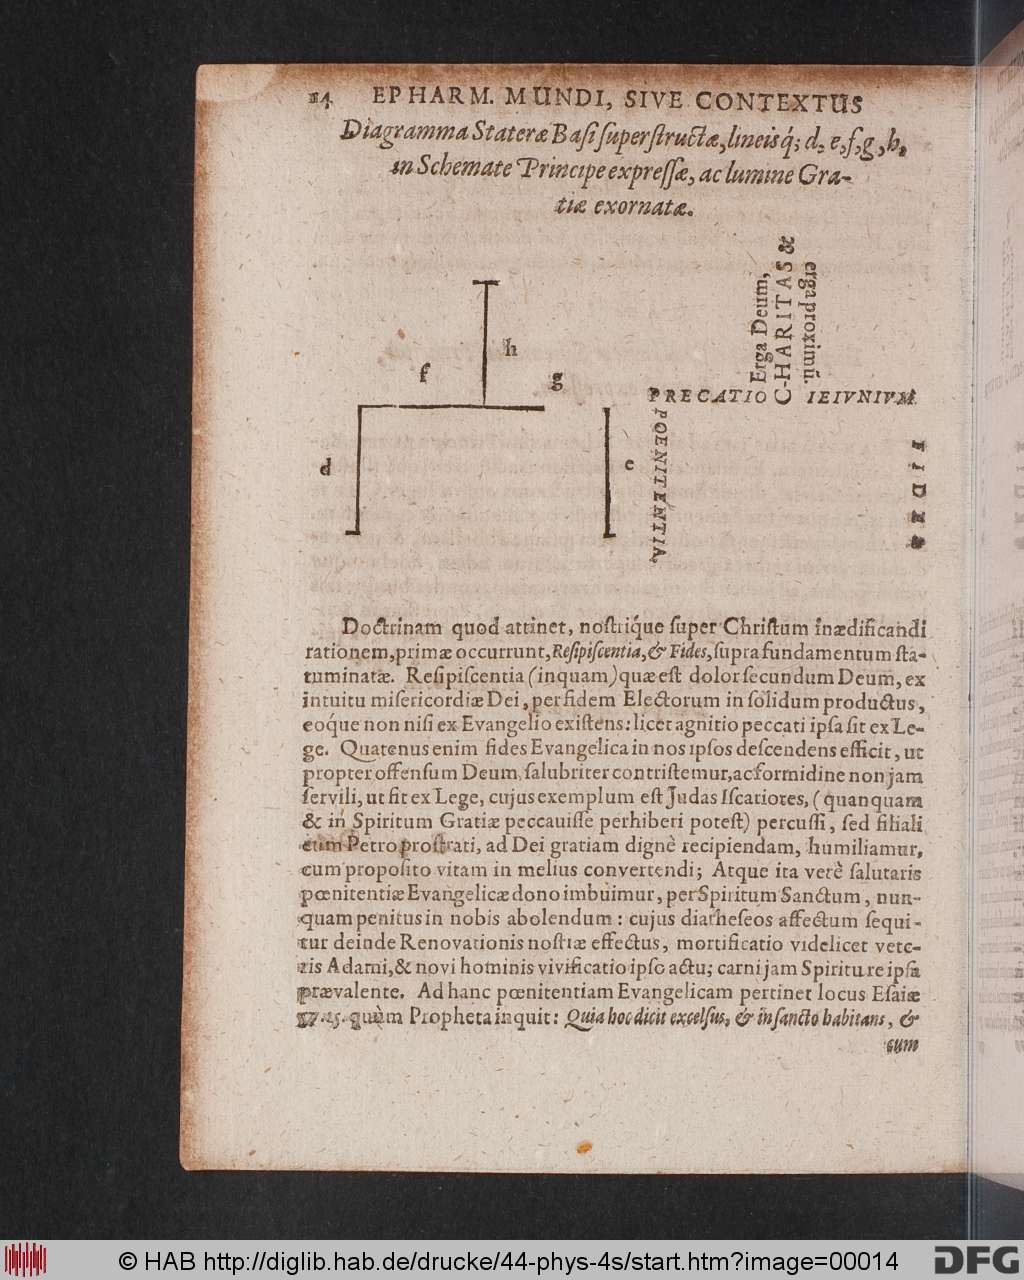 14 EPHARM. MUNDI, SIVE CONTEXTUS
Diagramma Stateræ Basi superstructæ, lineisq́; d, e, f, g, h,
in Schemate Principe expressæ, ac lumine Gra-
tiæ exornatæ.
h
f
g
d
e
Erga Deum,
CHARITAS &
erga proximū.
PRECATIO
IEIVNIVM.
POENITENTIA.
FIDES
Doctrinam quod attinet, nostriq́ue super Christum inædificandi
rationem, primæ occurrunt, Resipiscentia, & Fides, supra fundamentum sta-
tuminatæ. Resipiscentia (inquam) quæ est dolor secundum Deum, ex
intuitu misericordiæ Dei, per fidem Electorum in solidum productus,
eoq́ue non nisi ex Evangelio existens: licet agnitio peccati ipsa sit ex Le-
ge. Quatenus enim fides Evangelica in nos ipsos descendens efficit, ut
propter offensum Deum salubriter contristemur, ac formidine non jam
servili, ut fit ex Lege, cujus exemplum est Judas Iscariotes, (quanquam
& in Spiritum Gratiæ peccavisse perhiberi potest) percussi, sed filiali
cum Petro prostrati, ad Dei gratiam dignè recipiendam, humiliamur,
cum proposito vitam in melius convertendi; Atque ita verè salutaris
pœnitentiæ Evangelicæ dono imbuimur, per Spiritum Sanctum, nun-
quam penitus in nobis abolendum: cujus diatheseos affectum sequi-
tur deinde Renovationis nostræ effectus, mortificatio videlicet vete-
ris Adami, & novi hominis vivificatio ipso actu; carni jam Spiritu re ipsa
prævalente. Ad hanc pœnitentiam Evangelicam pertinet locus Esaiæ
quùm Propheta inquit: Quia hoc dicit excelsus, & in sancto habitans, &
cum
© HAB http://diglib.hab.de/drucke/44-phys-4s/start.htm?image=00014
DFG